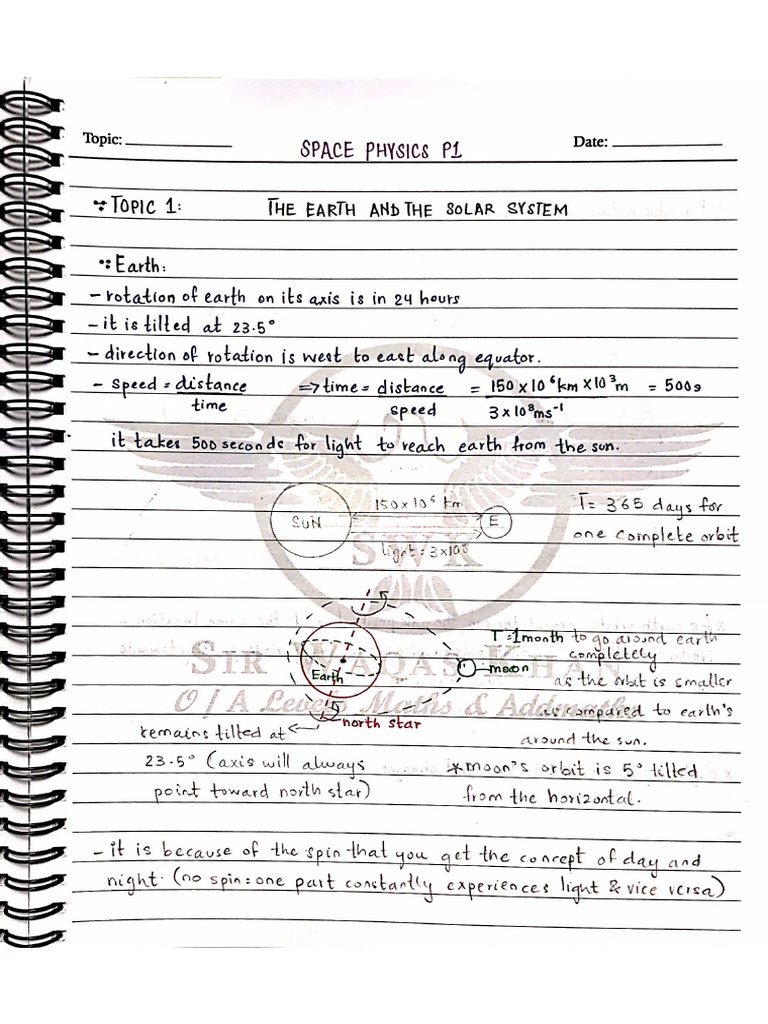 Topic: 
SPACE PHYSICS P1
Date: 
TOPIC 1: THE EARTH AND THE SOLAR SYSTEM
Earth:
- rotation of earth on its axis is in 24 hours
- it is tilted at 23.5°
- direction of rotation is west to east along equator.
- speed = distance / time ⇒ time = distance / speed = 150 x 10⁶ km x 10³ m / 3 x 10⁸ ms⁻¹ = 500s
it takes 500 seconds for light to reach earth from the sun.
SUN
150 x 10⁶ km
E
light = 3 x 10⁸
T = 365 days for
one complete orbit
SWK
T = 1 month to go around earth
completely
Earth
moon
as the orbit is smaller
as compared to earth's
around the sun.
SIR WAQAS KHAN
O / A Levels Maths & Addmaths
north star
remains tilted at
23.5° (axis will always
point toward north star)
*moon's orbit is 5° tilted
from the horizontal.
- it is because of the spin that you get the concept of day and
night. (no spin: one part constantly experiences light & vice versa)